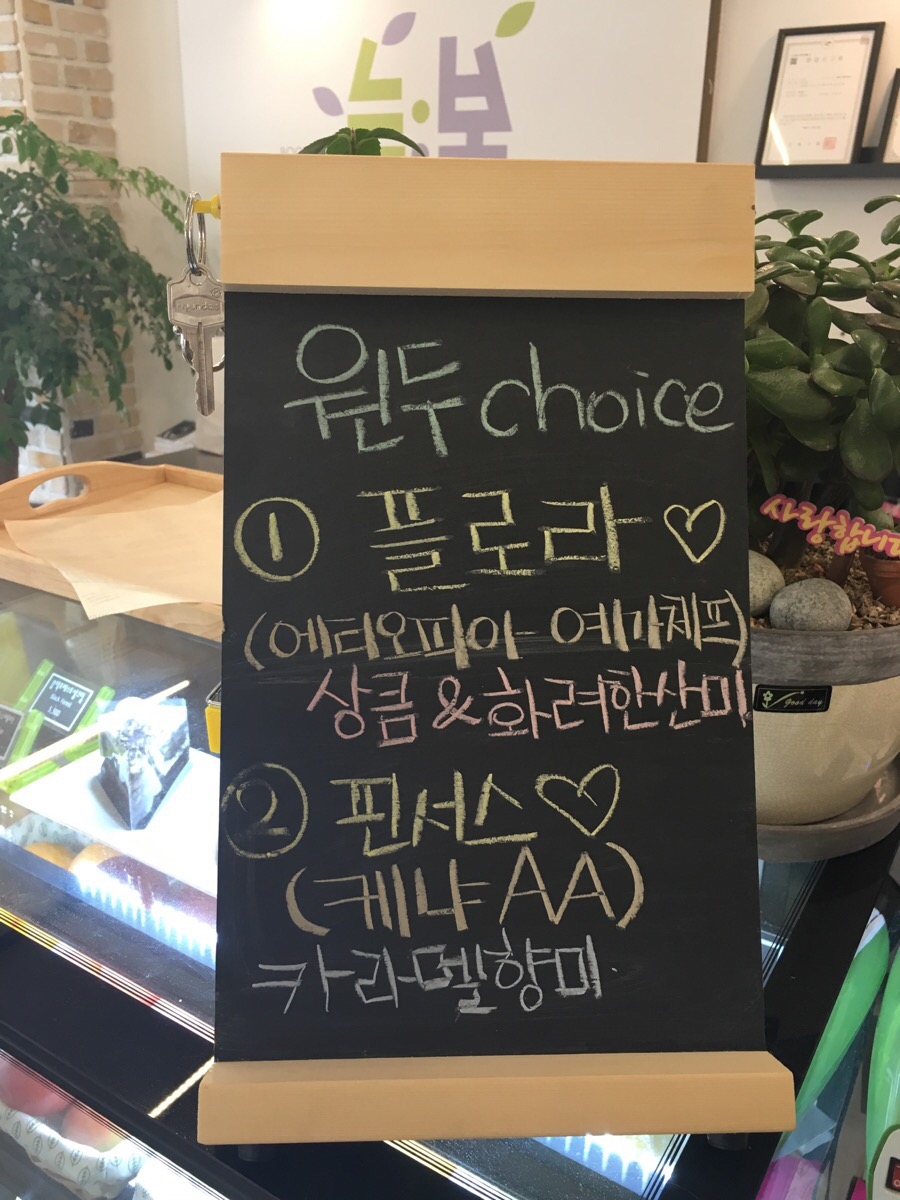 늘봄
원두 choice
① 플로라 ♡
(에디오피아 예가체프)
상큼 & 화려한산미
② 핀서스 ♡
(케냐 AA)
카라멜향미.
사랑합니다
good day